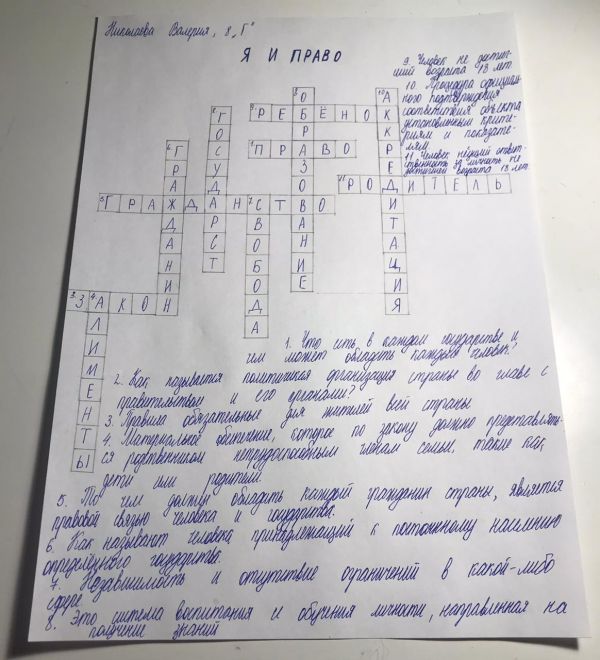 Николаева Валерия, 8 „Г"
Я И ПРАВО
9. Человек не достиг-
ший возраста 18 лет
10. Процедура официаль-
ного подтверждения
соответствия объекта
установленным крите-
риям и показате-
лям
11. Человек несущий ответ-
ственность за личность не
достигшей возраста 18 лет
9 РЕБЁНОК
1 ПРАВО
11 РОДИТЕЛЬ
5 ГРАЖДАНСТВО
3 ЗАКОН
4 АЛИМЕНТЫ
6 ГРАЖДАНИН
2 ГОСУДАРСТ
7 СВОБОДА
8 ОБРАЗОВАНИЕ
10 АККРЕДИТАЦИЯ
1. Что есть в каждом государстве и
чем может обладать каждый человек?
2. Как называется политическая организация страны во главе с
правительством и его органами?
3. Правила обязательные для жителей всей страны
4. Материальное обеспечение, которое по закону должно предоставлять-
ся родственником нетрудоспособным членам семьи, такие как
дети или родители.
5. То чем должен обладать каждый гражданин страны, является
правовой связью человека и государства.
6. Как называют человека, принадлежащий к постоянному населению
определённого государства.
7. Независимость и отсутствие ограничений в какой-либо
сфере
8. Это система воспитания и обучения личности, направленная на
получение знаний